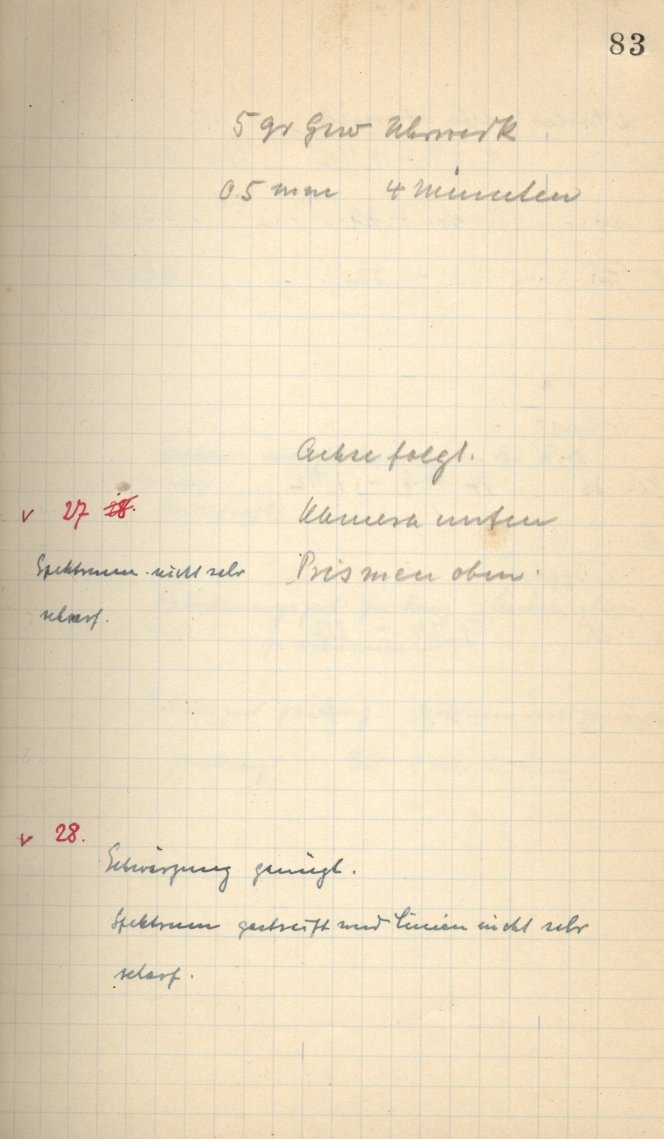 83
5 gr Gew Uhrwerk
0.5 mm 4 Minuten
Achse folgt.
v 27 28.
Kamera unten
Spektrum nicht sehr
scharf.
Prismen oben.
v 28.
Schwärzung genügt.
Spektrum gestreift und Linien nicht sehr
scharf.